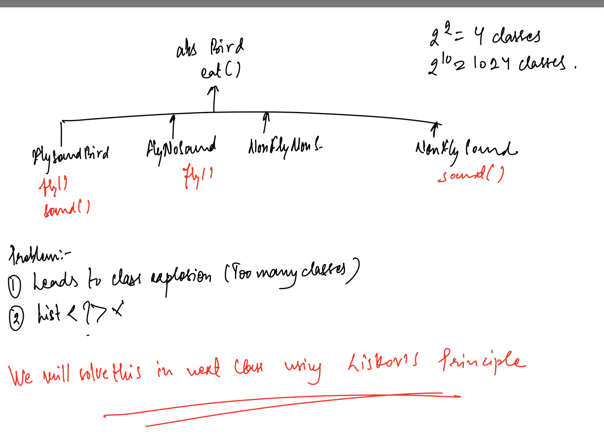 abs Bird
eat()
2^2 = 4 classes
2^10 = 1024 classes.
FlySoundBird
fly()
sound()
FlyNoSound
fly()
NonFlyNonS.
NonFlySound
sound()
Problem:-
① Leads to class explosion (Too many classes)
② List <?> x
We will solve this in next class using Liskov's Principle